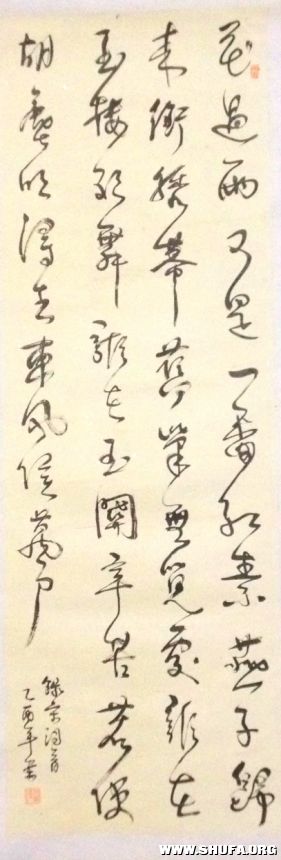 花過雨又是一番紅素燕子歸
来銜繡幕舊巢無覓處誰在
玉樓歌舞誰在玉關辛苦若使
胡塵吹得去東風侯萬戶
錄宋詞一首
乙酉年
WWW.SHUFA.ORG